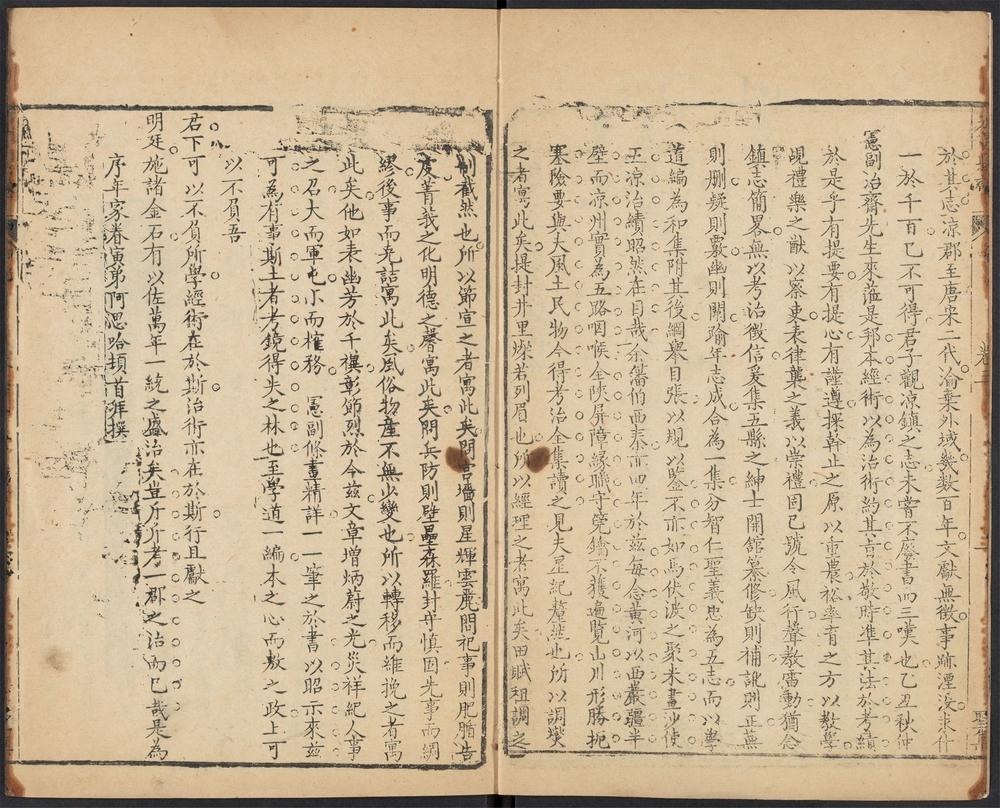 於其志涼郡至唐宋二代淪棄外域幾數百年文獻無徵事跡湮没求什
一於千百已不可得君子觀涼鎮之志未嘗不廢書而三嘆也乙丑秋仲
憲副治齋先生來蒞是邦本經術以為治術約其言於敬時準其法於考績
於是乎有提要有提心有謹遵採幹止之原以重農裕率育之方以敷學
峴禮樂之猷以察吏表律襲之義以崇禮固已號令風行聲教雷動猶念
鎮志簡畧無以考治徵信爰集五縣之紳士開舘纂修缺則補訛則正蕪
則刪疑則覈幽則闡踰年志成合為一集分智仁聖義忠為五志而以學
道編為和集附其後綱舉目張以規以鑒不亦如馬伏波之聚米畫沙使
五涼治績昭然在目哉余籓伯西秦亦四年於茲每念黄河以西巖疆半
壁而涼州實為五路咽喉全陝屏障緣職守筦鑰不獲遍覽山川形勝扼
塞險要與夫風土民物今得考治全集讀之見夫星紀釐然也所以調燮
之者寓此矣提封井里燦若列眉也所以經理之者寓此矣田賦租調之
制截然也所以節宣之者寓此矣問宫墻則星輝雲麗問祀事則肥腯告
度菁莪之化明德之馨寓此矣問兵防則壁壘森羅封守慎固先事而綢
繆後事而克詰寓此矣風俗物產不無少變也所以轉移而維挽之者寓
此矣他如表幽芳於千禩彰節烈於今茲文章增炳蔚之光災祥紀人事
之召大而軍屯小而榷務 憲副條畫精詳一一筆之於書以昭示來茲
可為有事斯土者考鏡得失之林也至學道一編本之心而敷之政上可
以不負吾
君下可以不負所學經術在於斯治術亦在於斯行且獻之
明廷施諸金石有以佐萬年一統之盛治矣豈斤斤考一郡之治而已哉是為
序年家眷寅弟阿思哈頓首拜撰